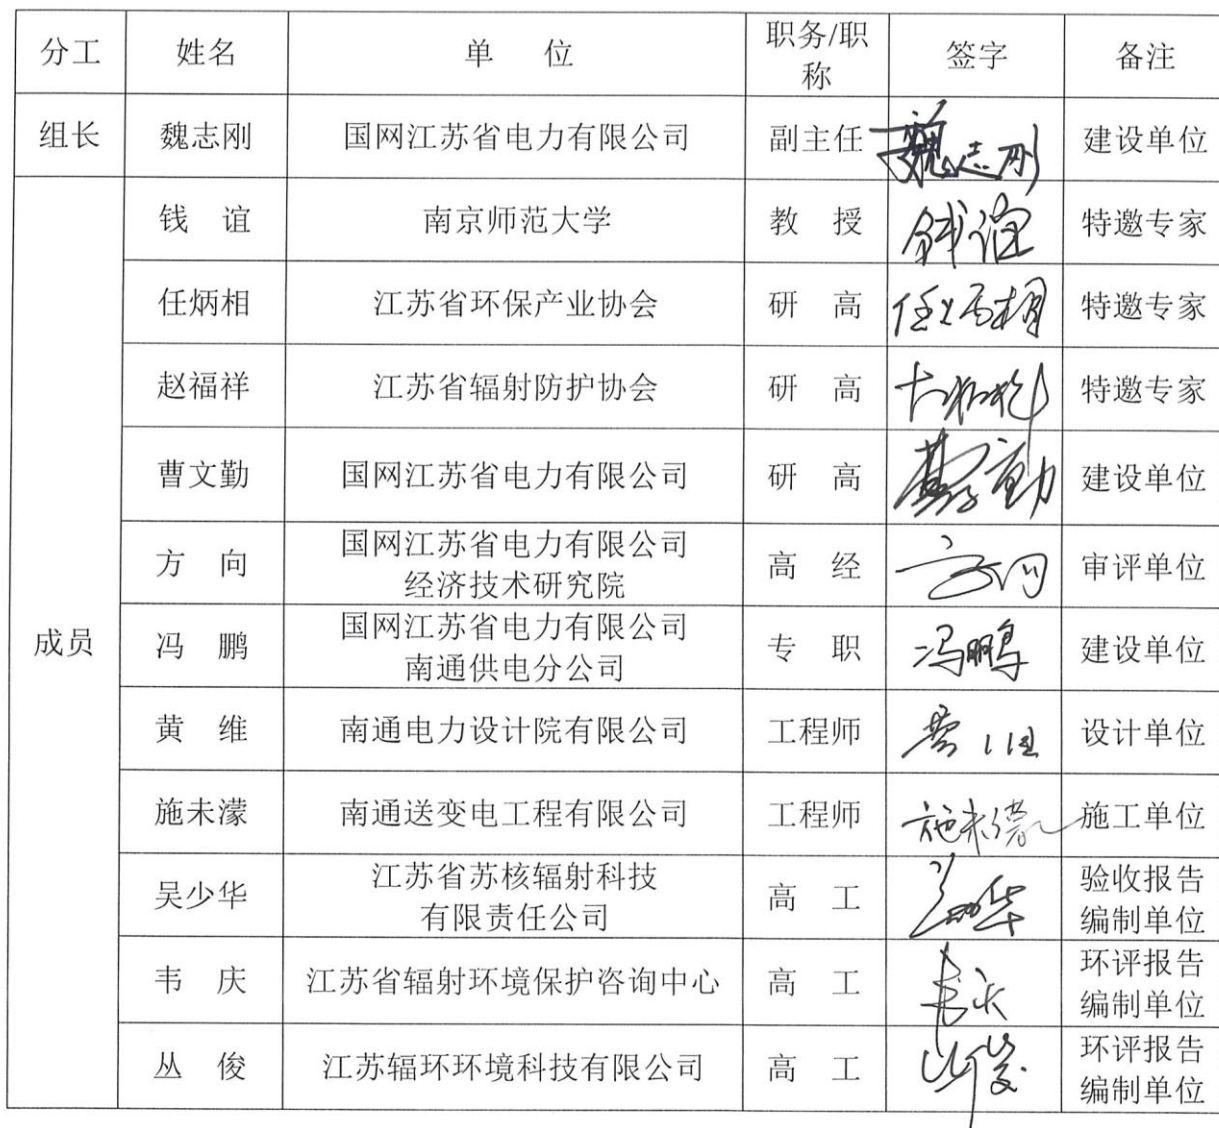 分工 姓名 单 位 职务/职称 签字 备注
组长 魏志刚 国网江苏省电力有限公司 副主任 魏志刚 建设单位
成员
钱 谊 南京师范大学 教 授 钱谊 特邀专家
任炳相 江苏省环保产业协会 研 高 任炳相 特邀专家
赵福祥 江苏省辐射防护协会 研 高 特邀专家
曹文勤 国网江苏省电力有限公司 研 高 建设单位
方 向 国网江苏省电力有限公司
经济技术研究院 高 经 方向 审评单位
冯 鹏 国网江苏省电力有限公司
南通供电分公司 专 职 冯鹏 建设单位
黄 维 南通电力设计院有限公司 工程师 黄维 设计单位
施未濛 南通送变电工程有限公司 工程师 施未濛 施工单位
吴少华 江苏省苏核辐射科技
有限责任公司 高 工 验收报告
编制单位
韦 庆 江苏省辐射环境保护咨询中心 高 工 韦庆 环评报告
编制单位
丛 俊 江苏辐环环境科技有限公司 高 工 丛俊 环评报告
编制单位